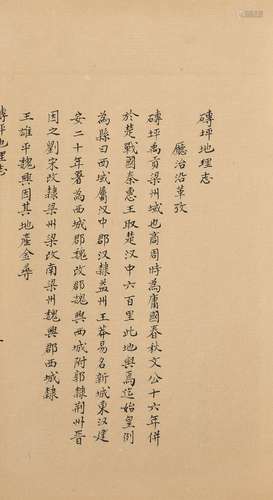 磚坪地理志
廳治沿革攷
磚坪禹貢梁州域也商周時為庸國春秋文公十六年併
於楚戰國秦惠王取楚漢中六百里此地與焉迄始皇例
為縣曰西城屬漢中郡漢隸益州王莽易名新城東漢建
安二十年署為西城郡魏改郡魏興西城附郭隸荆州晋
因之劉宋改隸梁州梁改南梁州魏興郡西城隸
王雄平魏興因其地產金尋
磚坪地理志